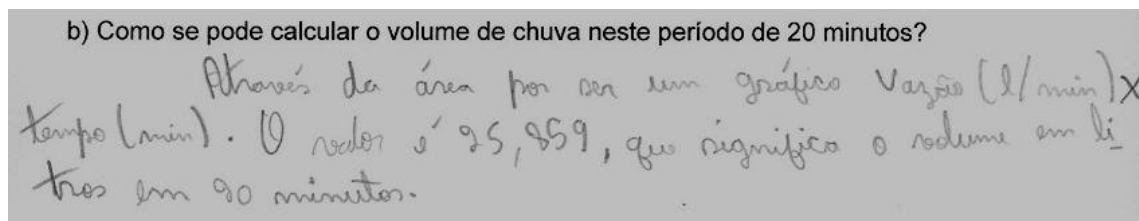 b) Como se pode calcular o volume de chuva neste período de 20 minutos?
Através da área por ser um gráfico Vazão (l/min) X
tempo (min). O valor é 25,859, que significa o volume em li
tros em 20 minutos.